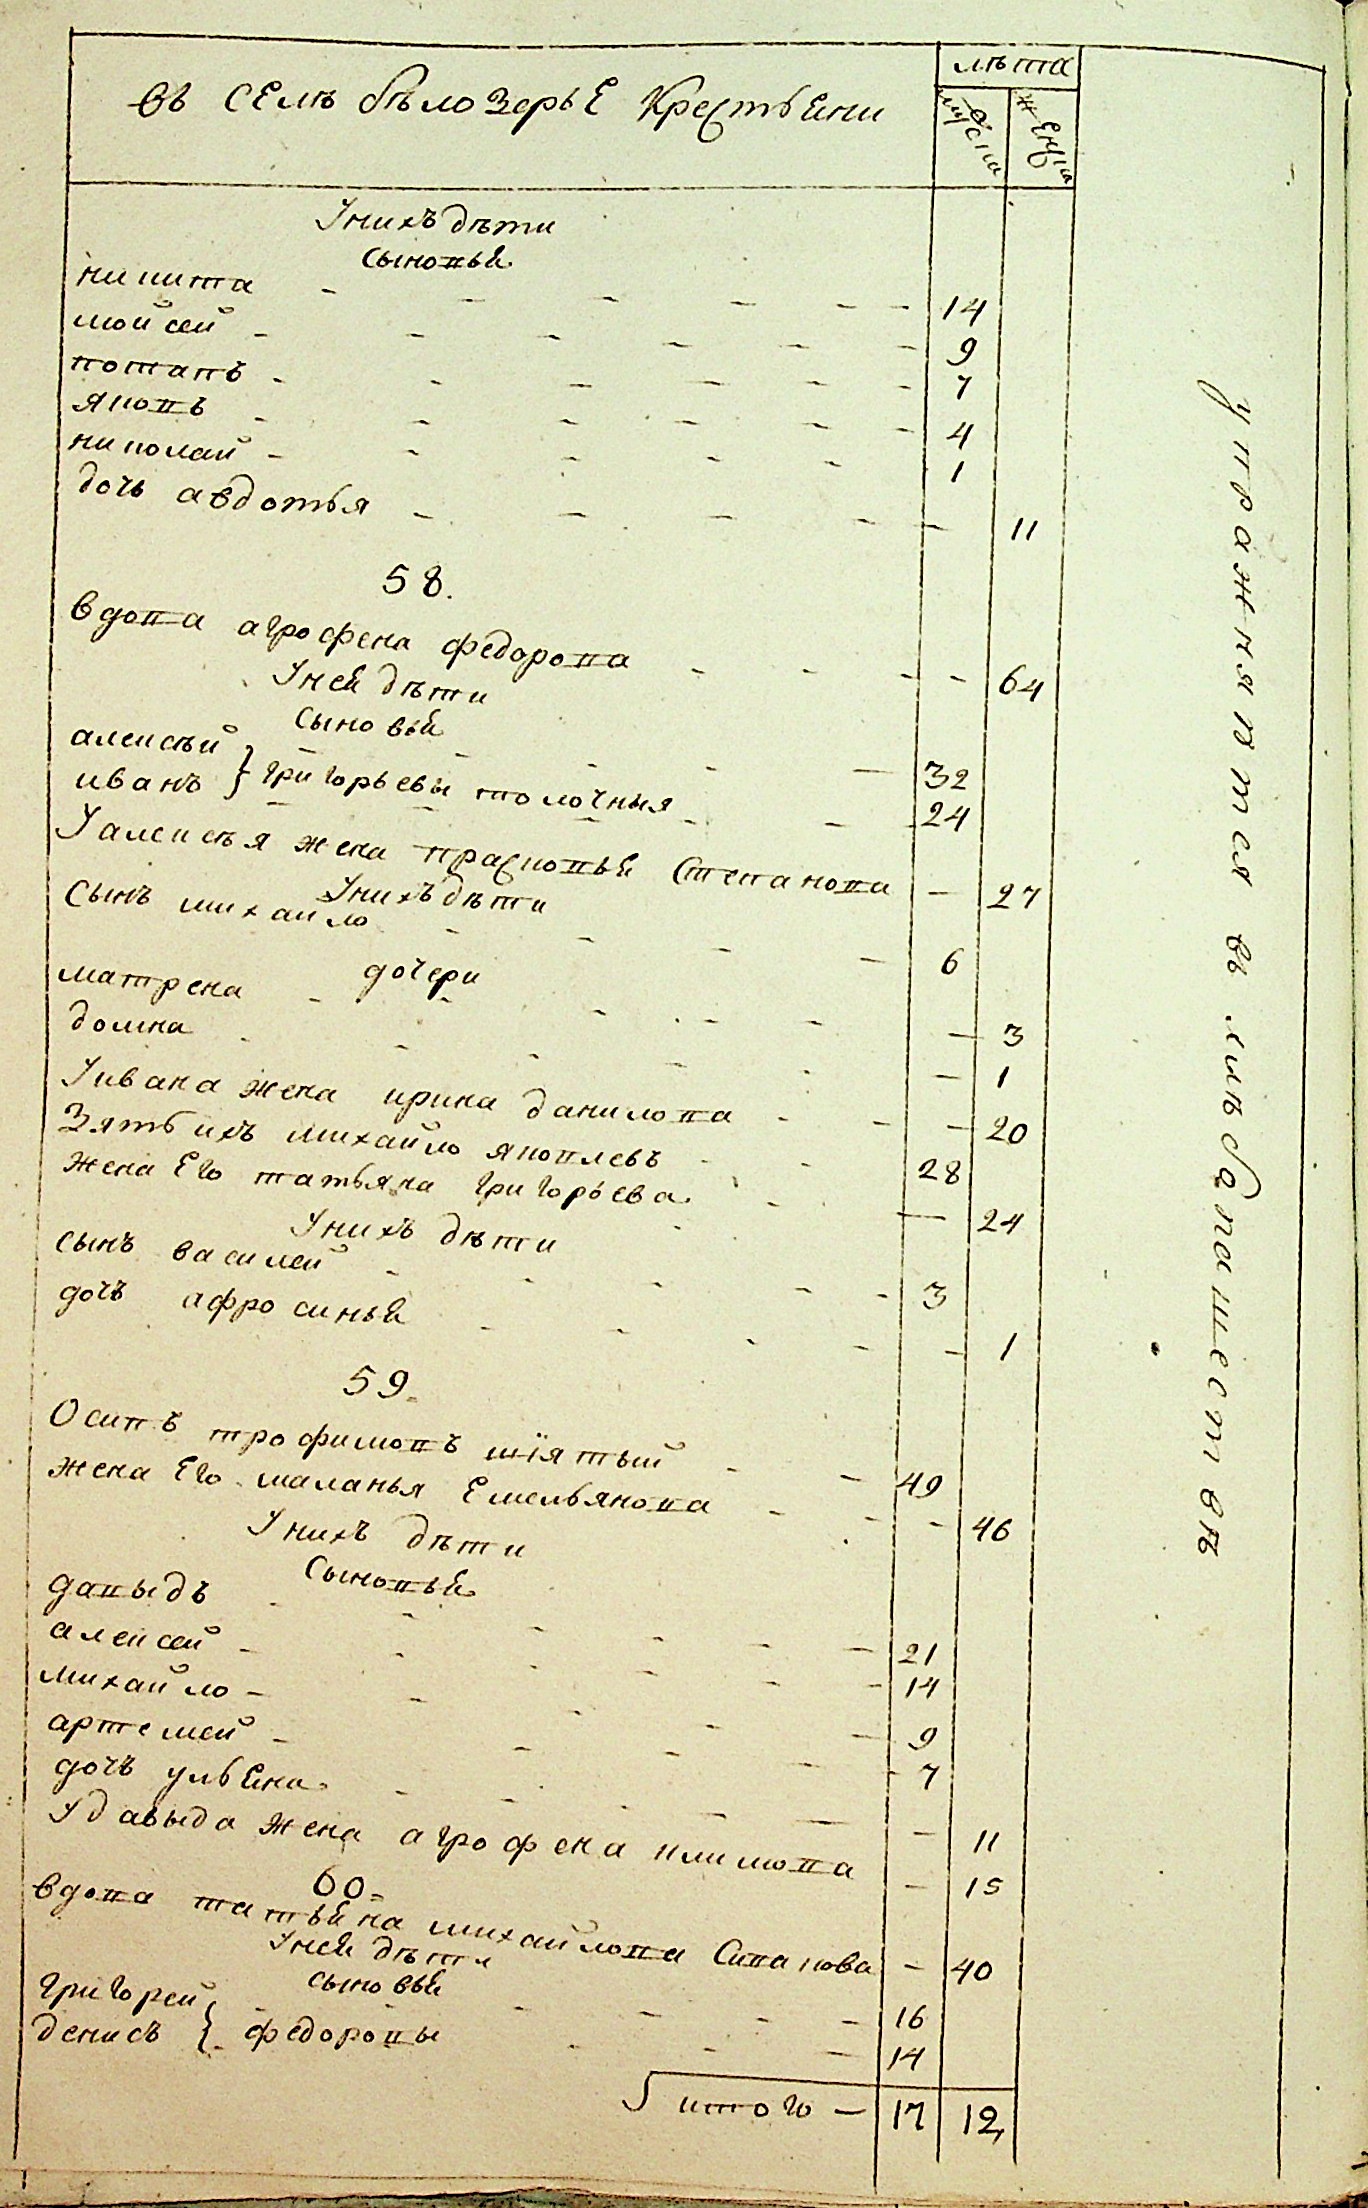 въ селѣ бѣлозерьѣ крестьяни
лѣта
мужска
женска
У нихъ дѣти
сыновья
никита - - - - - 14
мойсей - - - - - 9
потапъ - - - - - 7
яковъ - - - - - 4
николай - - - - - 1
дочь авдотья - - - - - 11
58.
вдова агрофена федорова - - - 64
У ней дѣти
сыновья
алексѣй - - - - 32
иванъ } григорьевы толочныя - - - 24
У алексѣя жена прасковья степанова - 27
У нихъ дѣти
сынъ михайло - - - - 6
дочери
матрена - - - - - 3
домна - - - - - 1
У ивана жена ирина данилова - - - 20
Зять ихъ михайло яковлевъ - - 28
жена его татьяна григорьева - - - 24
У нихъ дѣти
сынъ василей - - - - - 3
дочъ афросинья - - - - - 1
59.
Осипъ трофимовъ шіятый - - 49
жена его маланья емельянова - - - 46
У нихъ дѣти
сыновья
давыдъ - - - - - 21
алексей - - - - - 14
михайло - - - - - 9
артемей - - - - - 7
дочъ ульяна - - - - - 11
У давыда жена агрофена климова - 15
60.
вдова татьяна михайлова Сивакова - 40
У ней дѣти
сыновья
григорей - - - - 16
денисъ } федоровы - - - 14
итого - 17 12,
упражняются въ хлѣбопашествѣ